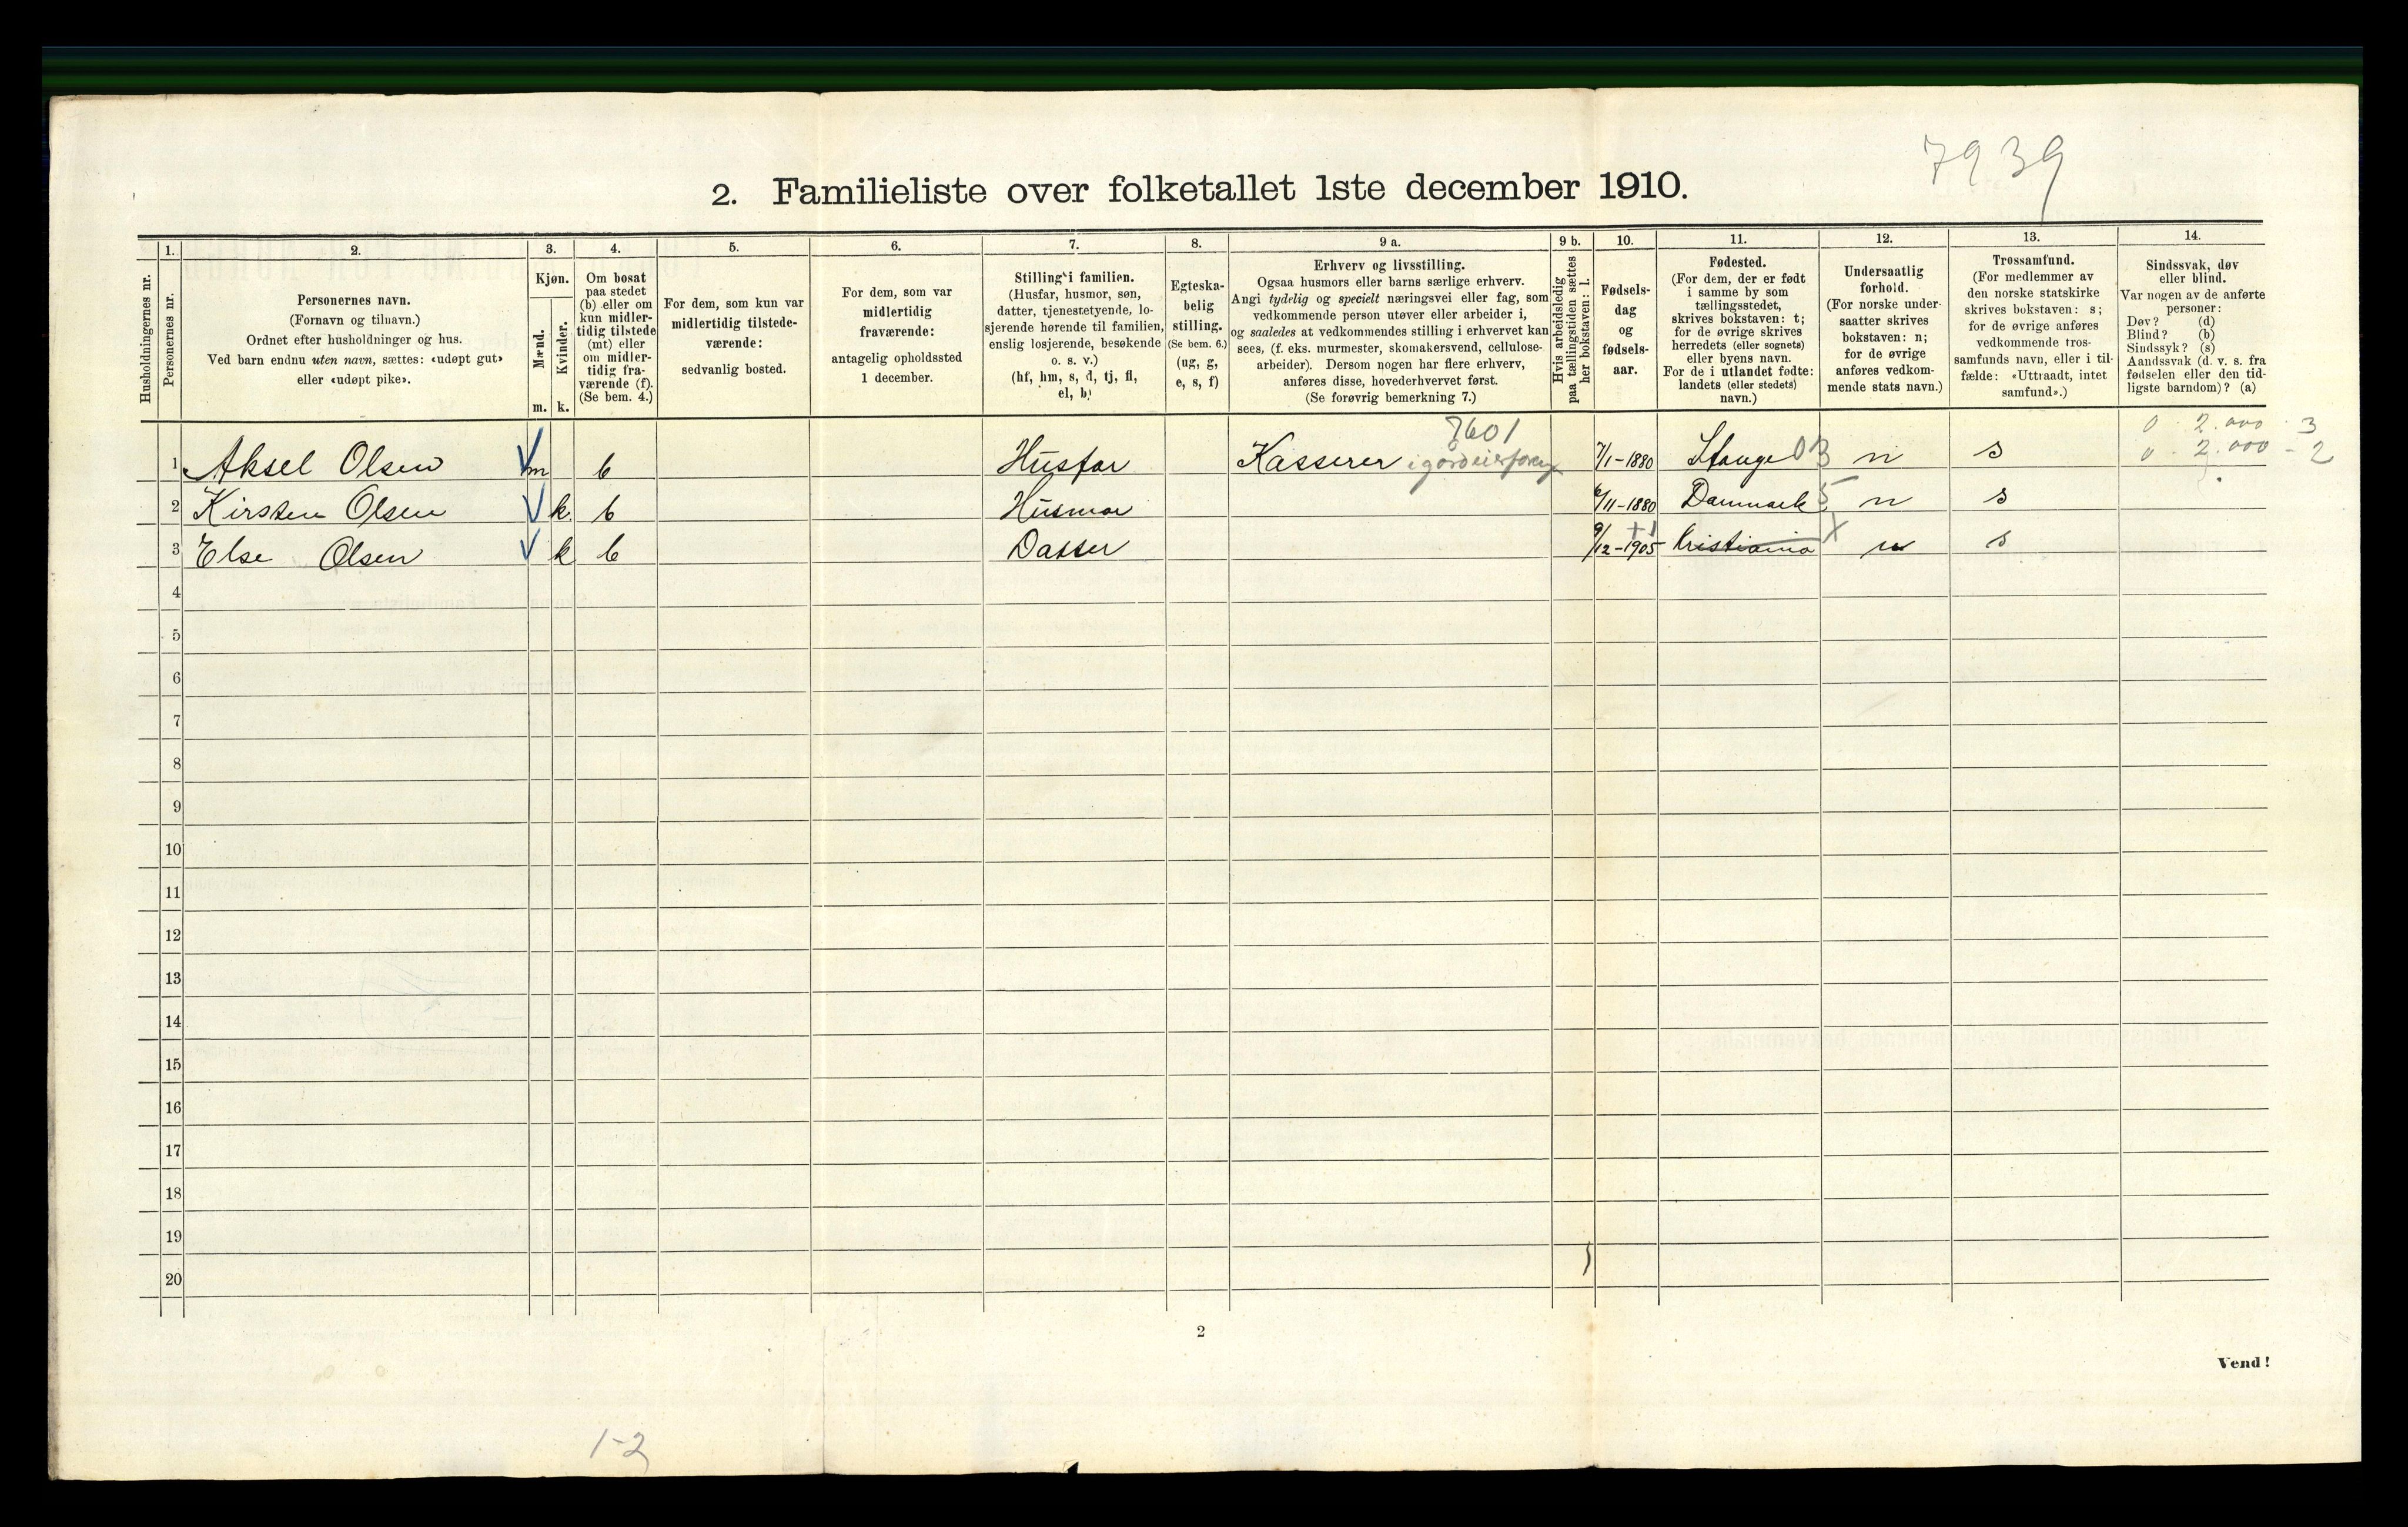 7939
2. Familieliste over folketallet 1ste december 1910.
Husholdningernes nr.
1.
Personernes nr.
2.
Personernes navn.
(Fornavn og tilnavn.)
Ordnet efter husholdninger og hus.
Ved barn endnu uten navn, sættes: «udøpt gut»
eller «udøpt pike».
3.
Kjøn.
Mænd.
Kvinder.
m. k.
4.
Om bosat
paa stedet
(b) eller om
kun midler-
tidig tilstede
(mt) eller
om midler-
tidig fra-
værende (f).
(Se bem. 4.)
5.
For dem, som kun var
midlertidig tilstede-
værende:
sedvanlig bosted.
6.
For dem, som var
midlertidig
fraværende:
antagelig opholdssted
1 december.
7.
Stilling i familien.
(Husfar, husmor, søn,
datter, tjenestetyende, lo-
sjerende hørende til familien,
enslig losjerende, besøkende
o. s. v.)
(hf, hm, s, d, tj, fl,
el, b)
8.
Egteska-
belig
stilling.
(Se bem. 6.)
(ug, g,
e, s, f)
9 a.
Erhverv og livsstilling.
Ogsaa husmors eller barns særlige erhverv.
Angi tydelig og specielt næringsvei eller fag, som
vedkommende person utøver eller arbeider i,
og saaledes at vedkommendes stilling i erhvervet kan
sees, (f. eks. murmester, skomakersvend, cellulose-
arbeider). Dersom nogen har flere erhverv,
anføres disse, hovederhvervet først.
(Se forøvrig bemerkning 7.)
9 b.
Hvis arbeidsledig
paa tællingstiden sættes
her bokstaven: l.
10.
Fødsels-
dag
og
fødsels-
aar.
11.
Fødested.
(For dem, der er født
i samme by som
tællingsstedet,
skrives bokstaven: t;
for de øvrige skrives
herredets (eller sognets)
eller byens navn.
For de i utlandet fødte:
landets (eller stedets)
navn.)
12.
Undersaatlig
forhold.
(For norske under-
saatter skrives
bokstaven: n;
for de øvrige
anføres vedkom-
mende stats navn.)
13.
Trossamfund.
(For medlemmer av
den norske statskirke
skrives bokstaven: s;
for de øvrige anføres
vedkommende tros-
samfunds navn, eller i til-
fælde: «Uttraadt, intet
samfund».)
14.
Sindssvak, døv
eller blind.
Var nogen av de anførte
personer:
Døv? (d)
Blind? (b)
Sindssyk? (s)
Aandssvak (d. v. s. fra
fødselen eller den tid-
ligste barndom)? (a)
8601 0 2.000 - 3
1 Aksel Olsen m b Husfar Kasserer 7/1-1880 Stange 03 n s 0 2.000 - 2
2 Kirsten Olsen k b Husmor 6/11-1880 Danmark 5 n s
3 Else Olsen k b Datter 9/12-1905 Kristiania n s
4
5
6
7
8
9
10
11
12
13
14
15
16
17
18
19
20
2
Vend!
1-2